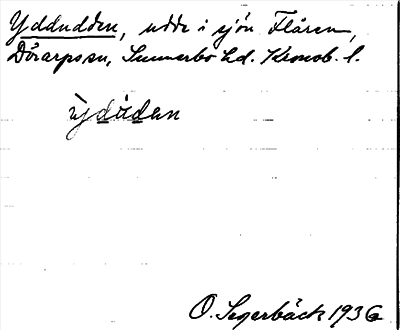 Yddudden, udde i sjön Flåren,
Dörarps sn, Sunnerbo hd. Kronob. l.
ỳdùdan
O. Segerbäck 1936